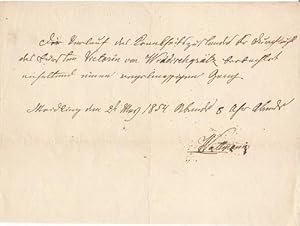 Der Verlauf des Krankheitszustandes der Durchlaucht
des Fürsten Victorin von Windischgrätz beobachtet
einen regelmässigen Gang
Meidling den 26 May 1854 Abends 8 Uhr Abends
Wattmann